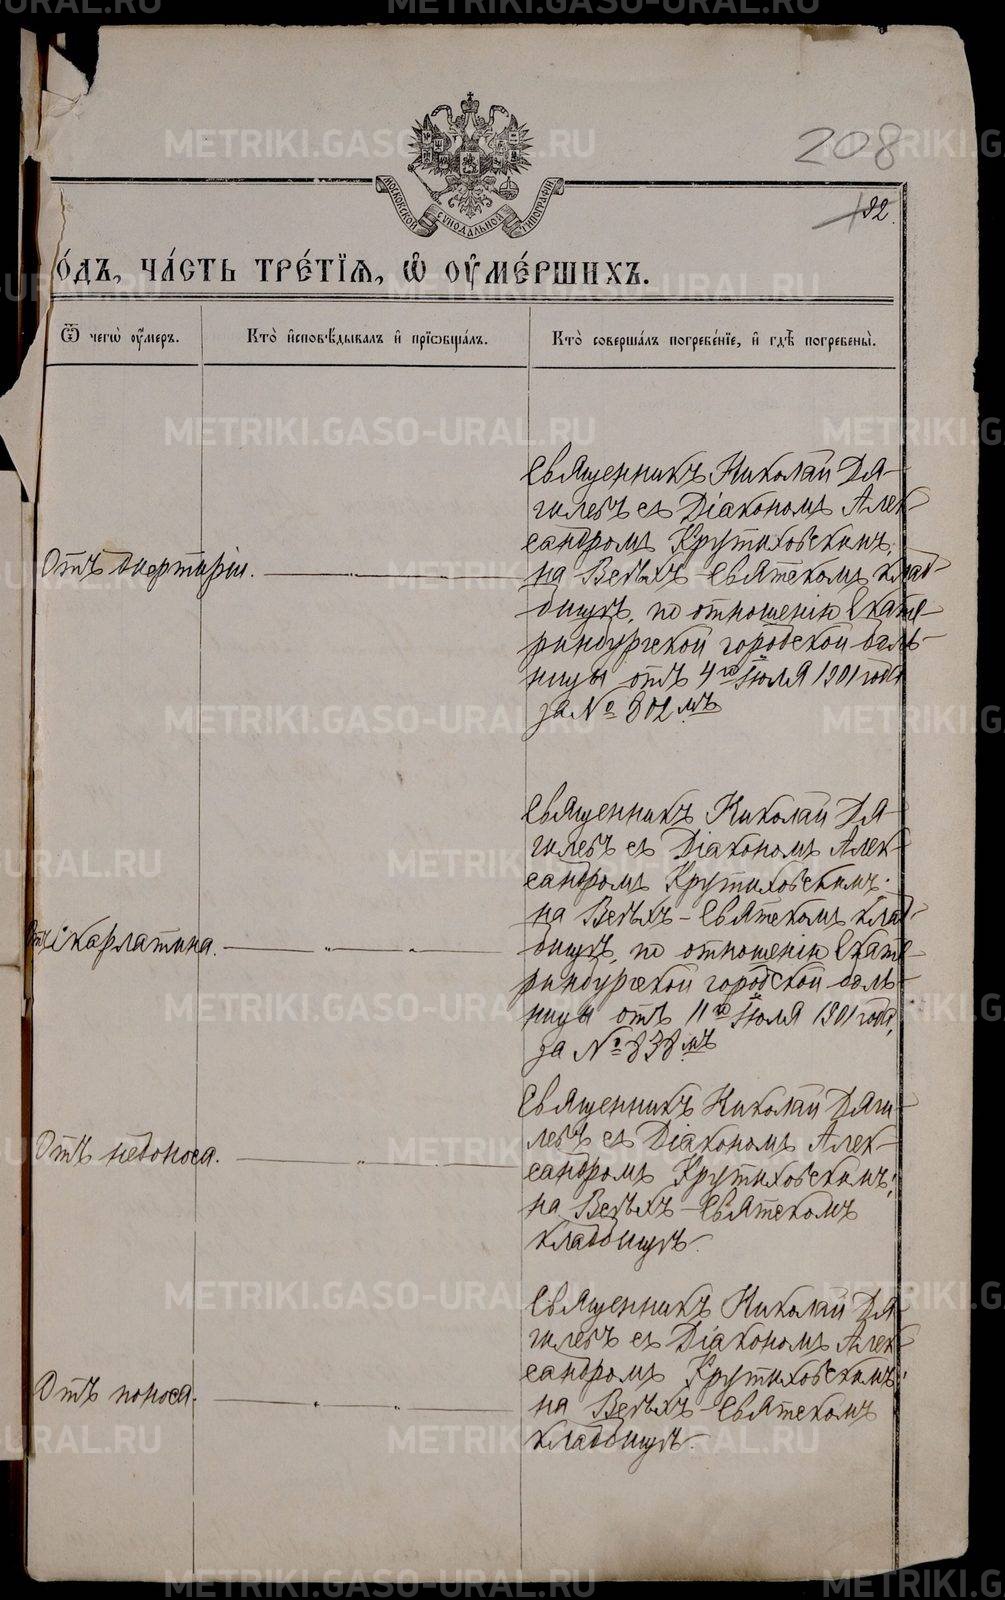 208
192.
МОСКОВСКОЙ СѴНОДАЛЬНОЙ ТИПОГРАФІИ
о́дъ, ча́сть тре́тїѧ, ѡ҆ оу҆ме́ршихъ.
Ѿ чегѡ̀ оу҆́меръ.
Кто̀ и҆сповѣ́дывалъ и҆ прїѡбща́лъ.
Кто̀ соверша́лъ погребе́нїе, и҆ гдѣ̀ погребены̀.
Отъ дифтеріи.
Священникъ Николай Дя-
гилевъ съ Діакономъ Алек-
сандромъ Крутиховскимъ;
на Всѣхъ-Святскомъ клад-
бищѣ, по отношенію Екате-
ринбургской городской боль-
ницы отъ 4го Іюля 1901 года
за № 802мъ
Отъ скарлатина.
Священникъ Николай Дя-
гилевъ съ Діакономъ Алек-
сандромъ Крутиховскимъ;
на Всѣхъ-Святскомъ клад-
бищѣ, по отношенію Екате-
ринбургской городской боль-
ницы отъ 11го Іюля 1901 года,
за № 838мъ
Отъ недоноса.
Священникъ Николай Дяги-
левъ съ Діакономъ Алек-
сандромъ Крутиховскимъ;
на Всѣхъ-Святскомъ
кладбищѣ.
Отъ поноса.
Священникъ Николай Дя-
гилевъ съ Діакономъ Алек-
сандромъ Крутиховскимъ;
на Всѣхъ-Святскомъ
кладбищѣ.
METRIKI.GASO-URAL.RU